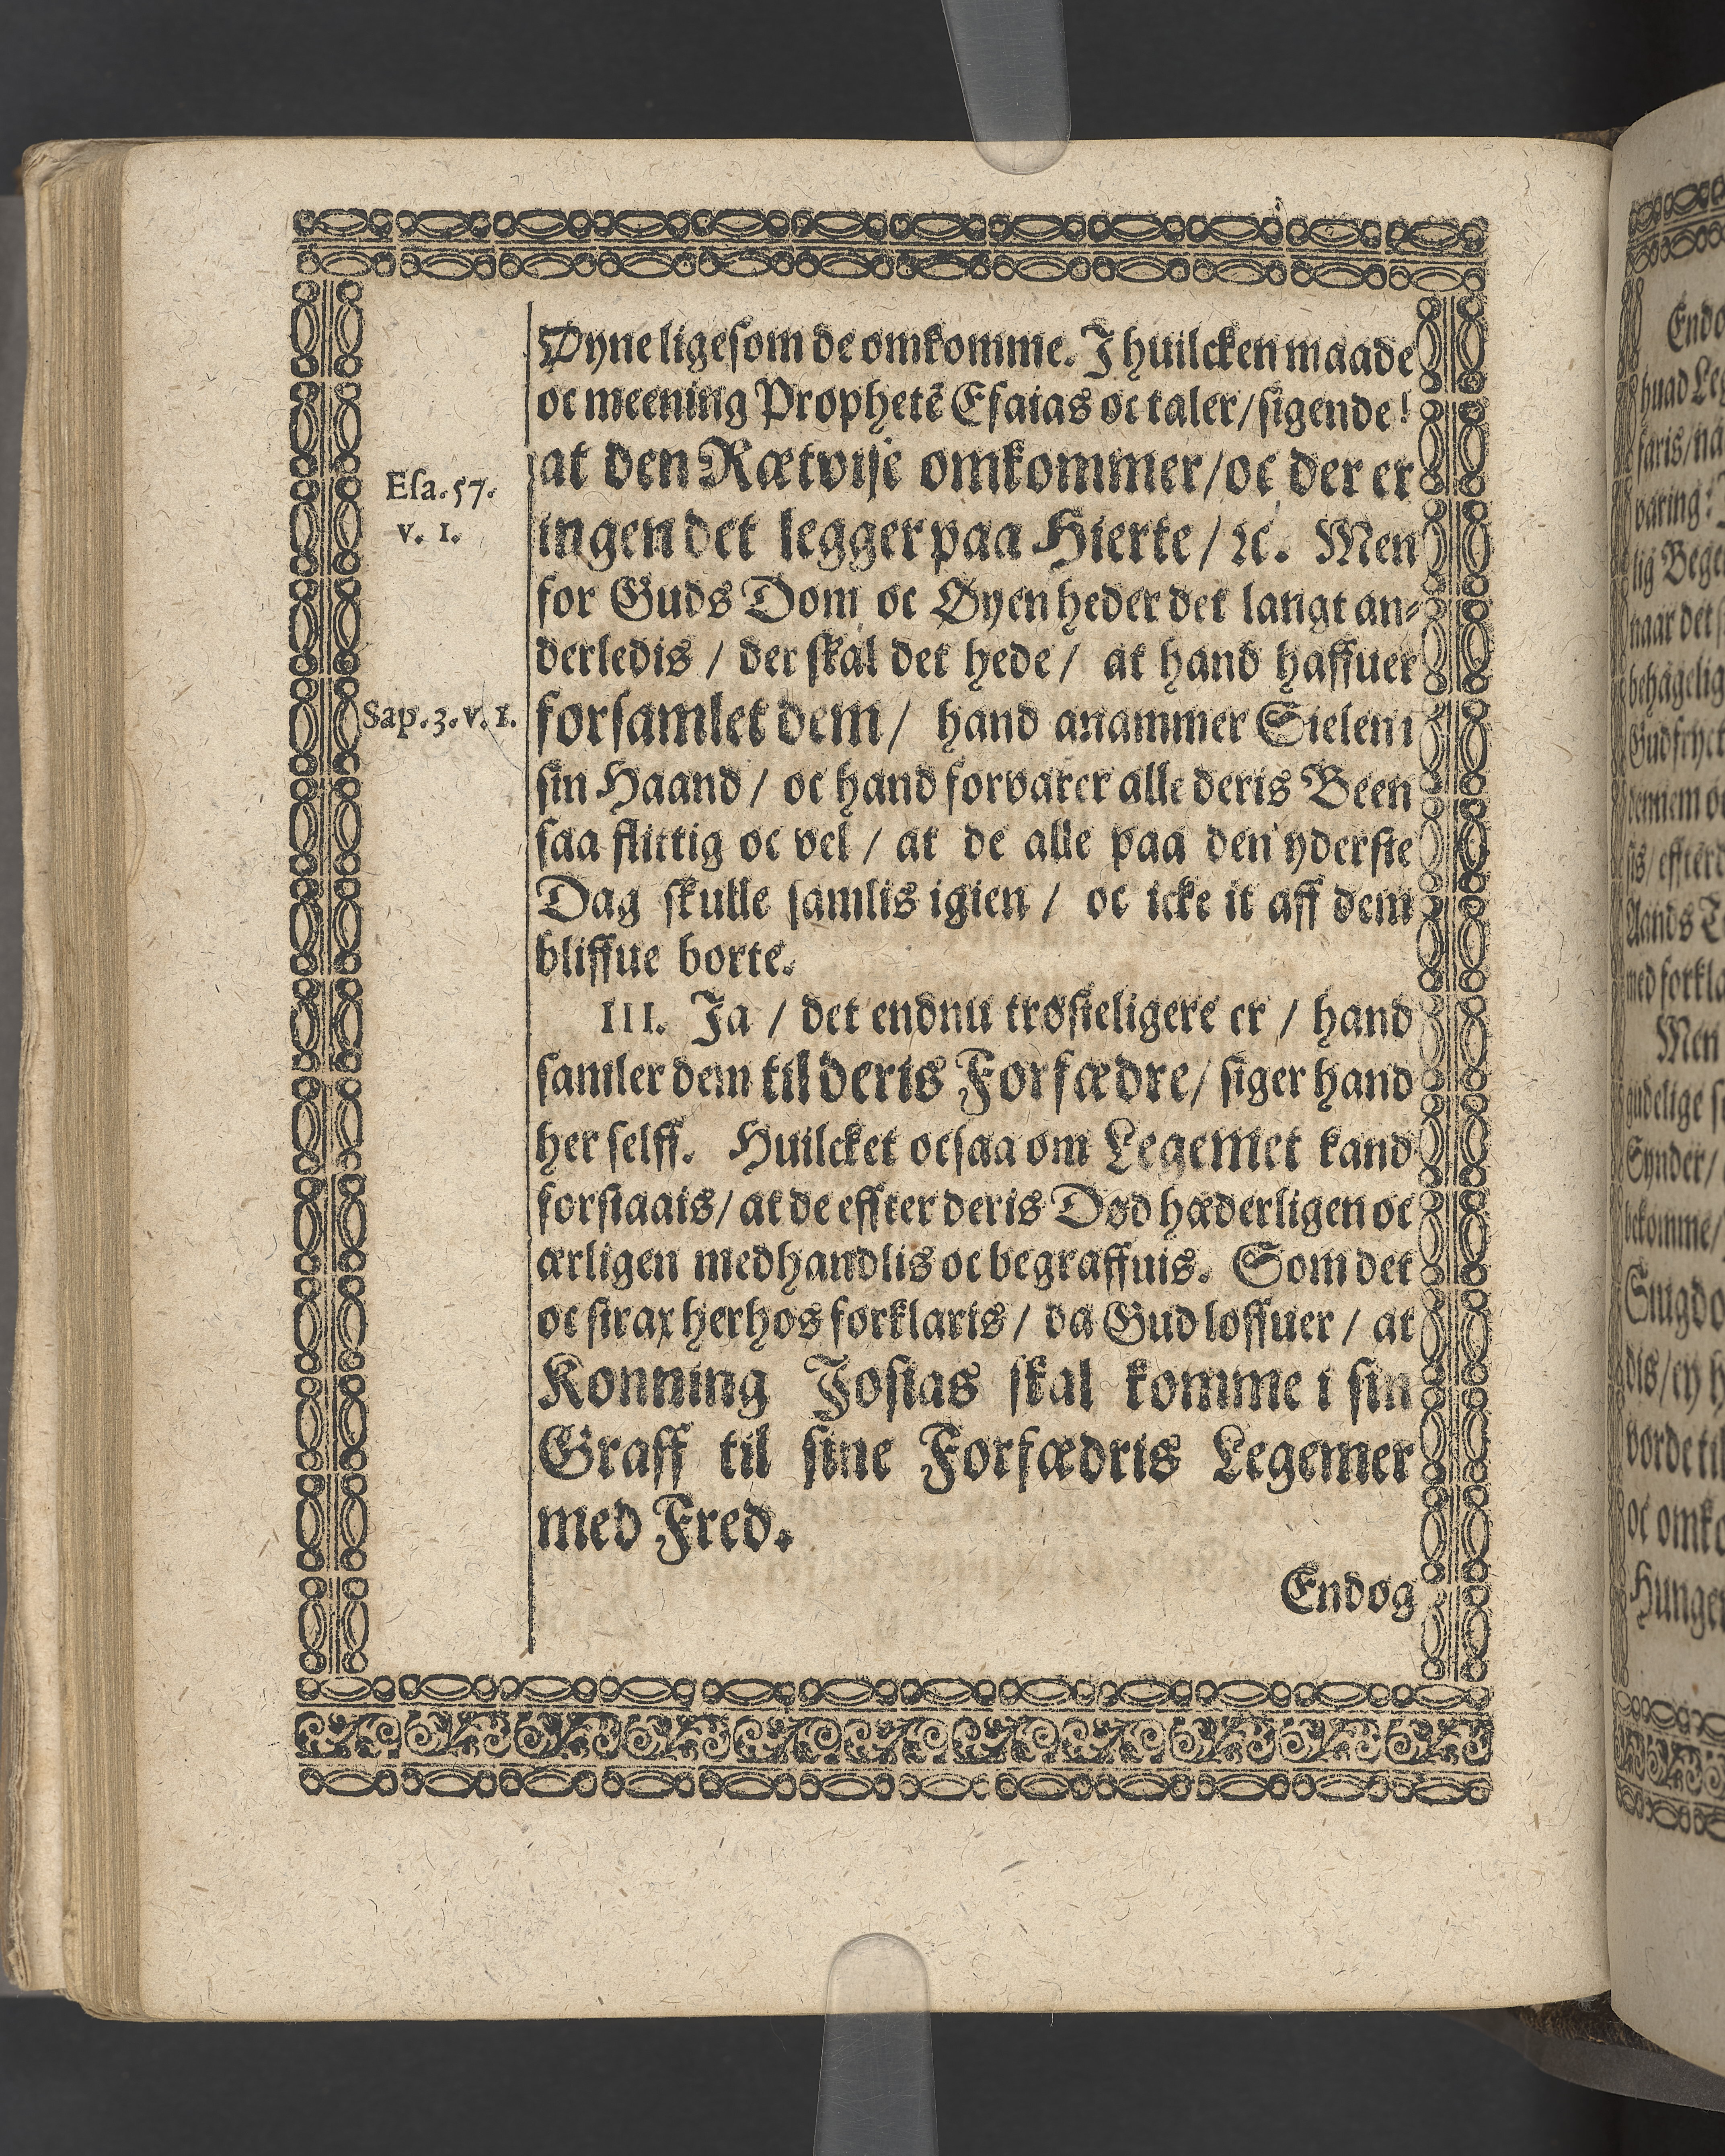 Øyne ligesom de omkomme. I huilcken maade
oc meening Prophetẽ Esaias oc taler/sigende!
at den Rætvise omkommer/oc der er
Esa. 57.
v. 1.
ingen det legger paa Hierte/ ꝛc. Men
for Guds Dom oc Øyen heder det langt an-
derledis / der skal det hede/ at hand haffuer
Sap. 3. v. 1.
forsamlet dem/ hand anammer Sielen i
sin Haand / oc hand forvarer alle deris Been
saa flittig oc vel / at de alle paa den yderste
Dag skulle samlis igien / oc icke it aff dem
bliffue borte.
III. Ja / det endnu trøsteligere er / hand
samler dem til deris Forfædre/ siger hand
her selff. Huilcket ocsaa om Legemet kand
forstaais/ at de effter deris Død hæderligen oc
ærligen medhandlis oc begraffuis. Som det
oc strax herhos forklaris/ da Gud loffuer / at
Konning Josias skal komme i sin
Graff til sine Forfædris Legemer
med Fred.
Endog